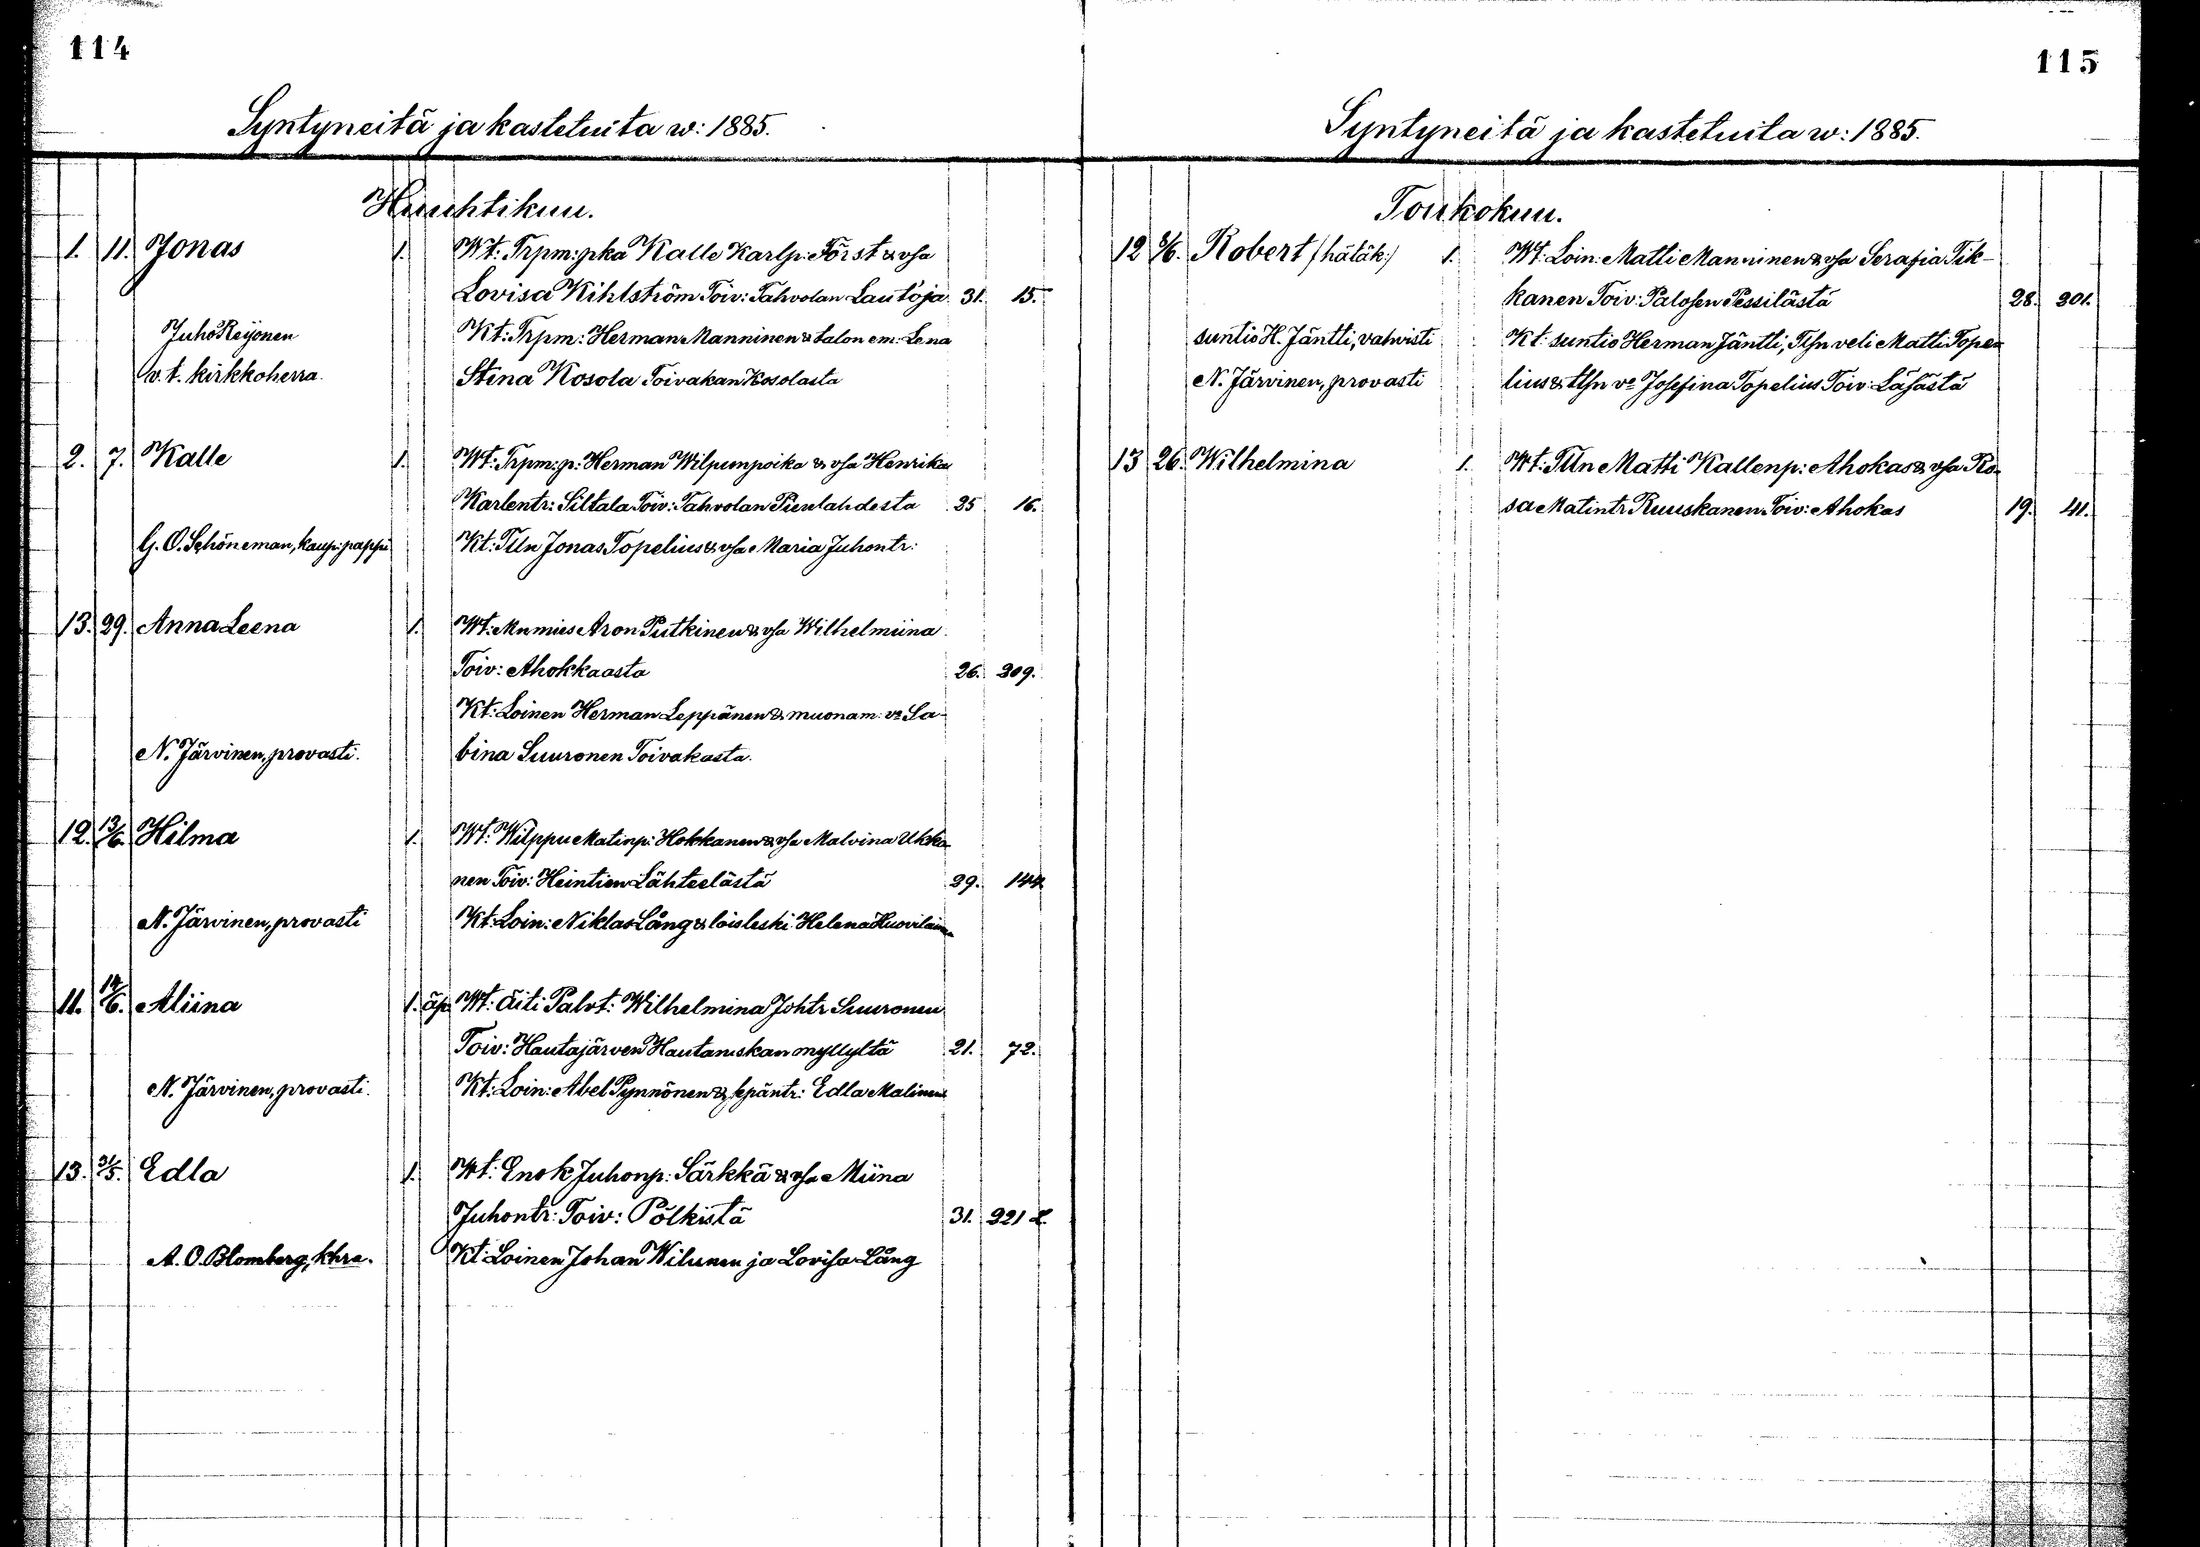 114
Syntyneitä ja kastetuita w: 1885.
Huuhtikuu.
1. 11. Jonas 1. Wt: Trpm: pka Kalle Karlp: Först & vsa
Lovisa Kihlström Toiv: Tahvolan Lautoja 31. 15.
Juho Reijonen Kt: Trpm: Herman Manninen & talon em: Lena
v. t. kirkkoherra. Stina Kosola Toivakan Kosolasta
2. 7. Kalle 1. Wt: Trpm: p: Herman Wilpunpoika & vsa Henrika
Karlentr: Siltala Toiv: Tahvolan Pienlahdesta 35 16.
G. O. Schöneman, kaup: pappi Kt: Tlln Jonas Topelius & vsa Maria Juhontr:
13. 29. Anna Leena 1. Wt: Mnmies Aron Putkinen & vsa Wilhelmiina
Toiv: Ahokkaasta 26. 309.
Kt: Loinen Herman Leppänen & muonam: vo Sa-
N. Järvinen, provasti. bina Suuronen Toivakasta.
12. 13/6. Hilma 1. Wt: Wilppu Matinp: Hokkanen & vsa Malvina Ukko
nen Toiv: Heintien Lähteelästä 29. 144
N. Järvinen, provasti Kt: Loin: Niklas Lång & loisleski Helena Huovilainen
11. 14/6. Aliina 1. äp. Wt: Äiti Palvt: Wilhelmina Johtr Suuronen
Toiv: Hautajärven Hautaniskan myllyltä 21. 72.
N. Järvinen, provasti. Kt: Loin: Abel Pynnönen & sepäntr: Edla Malinen
13. 31/5. Edla 1. Wt: Enok Juhonp: Särkkä & vsa Miina
Juhontr: Toiv: Pölkistä 31. 321 L.
A. O. Blomberg, khra. Kt: Loinen Johan Wilunen ja Lovisa Lång
115
Syntyneitä ja kastetuita w: 1885.
Toukokuu.
12 8/6. Robert /hätäk:/ 1. Wt: Loin: Matti Manninen & vsa Serafia Tik-
kanen Toiv: Palosen Pessilästä 28. 301.
suntio H. Jäntti, vahvisti Kt: suntio Herman Jäntti, Tlln veli Matti Tope
N. Järvinen, provasti lius & tlln vo Josefina Topelius Toiv: Läsästä
13 26. Wilhelmina 1. Wt: Tlln Matti Kallenp: Ahokas & vsa Ro-
sa Matintr Ruuskanen Toiv: Ahokas 19. 41.